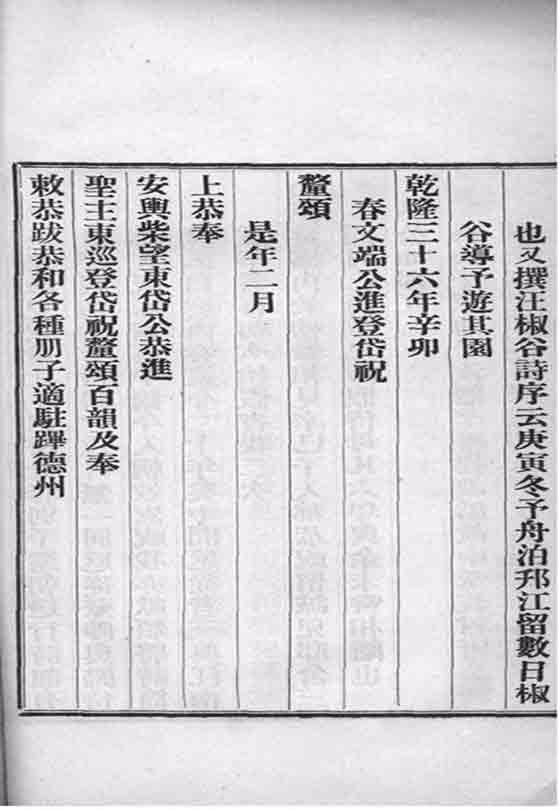 也又撰汪椒谷詩序云庚寅冬予舟泊邗江留數日椒
谷導予遊其園
乾隆三十六年辛卯
春文端公進登岱祝
釐頌
是年二月
上恭奉
安輿柴望東岱公恭進
聖主東巡登岱祝釐頌百韻及奉
敕恭跋恭和各種册子適駐蹕德州